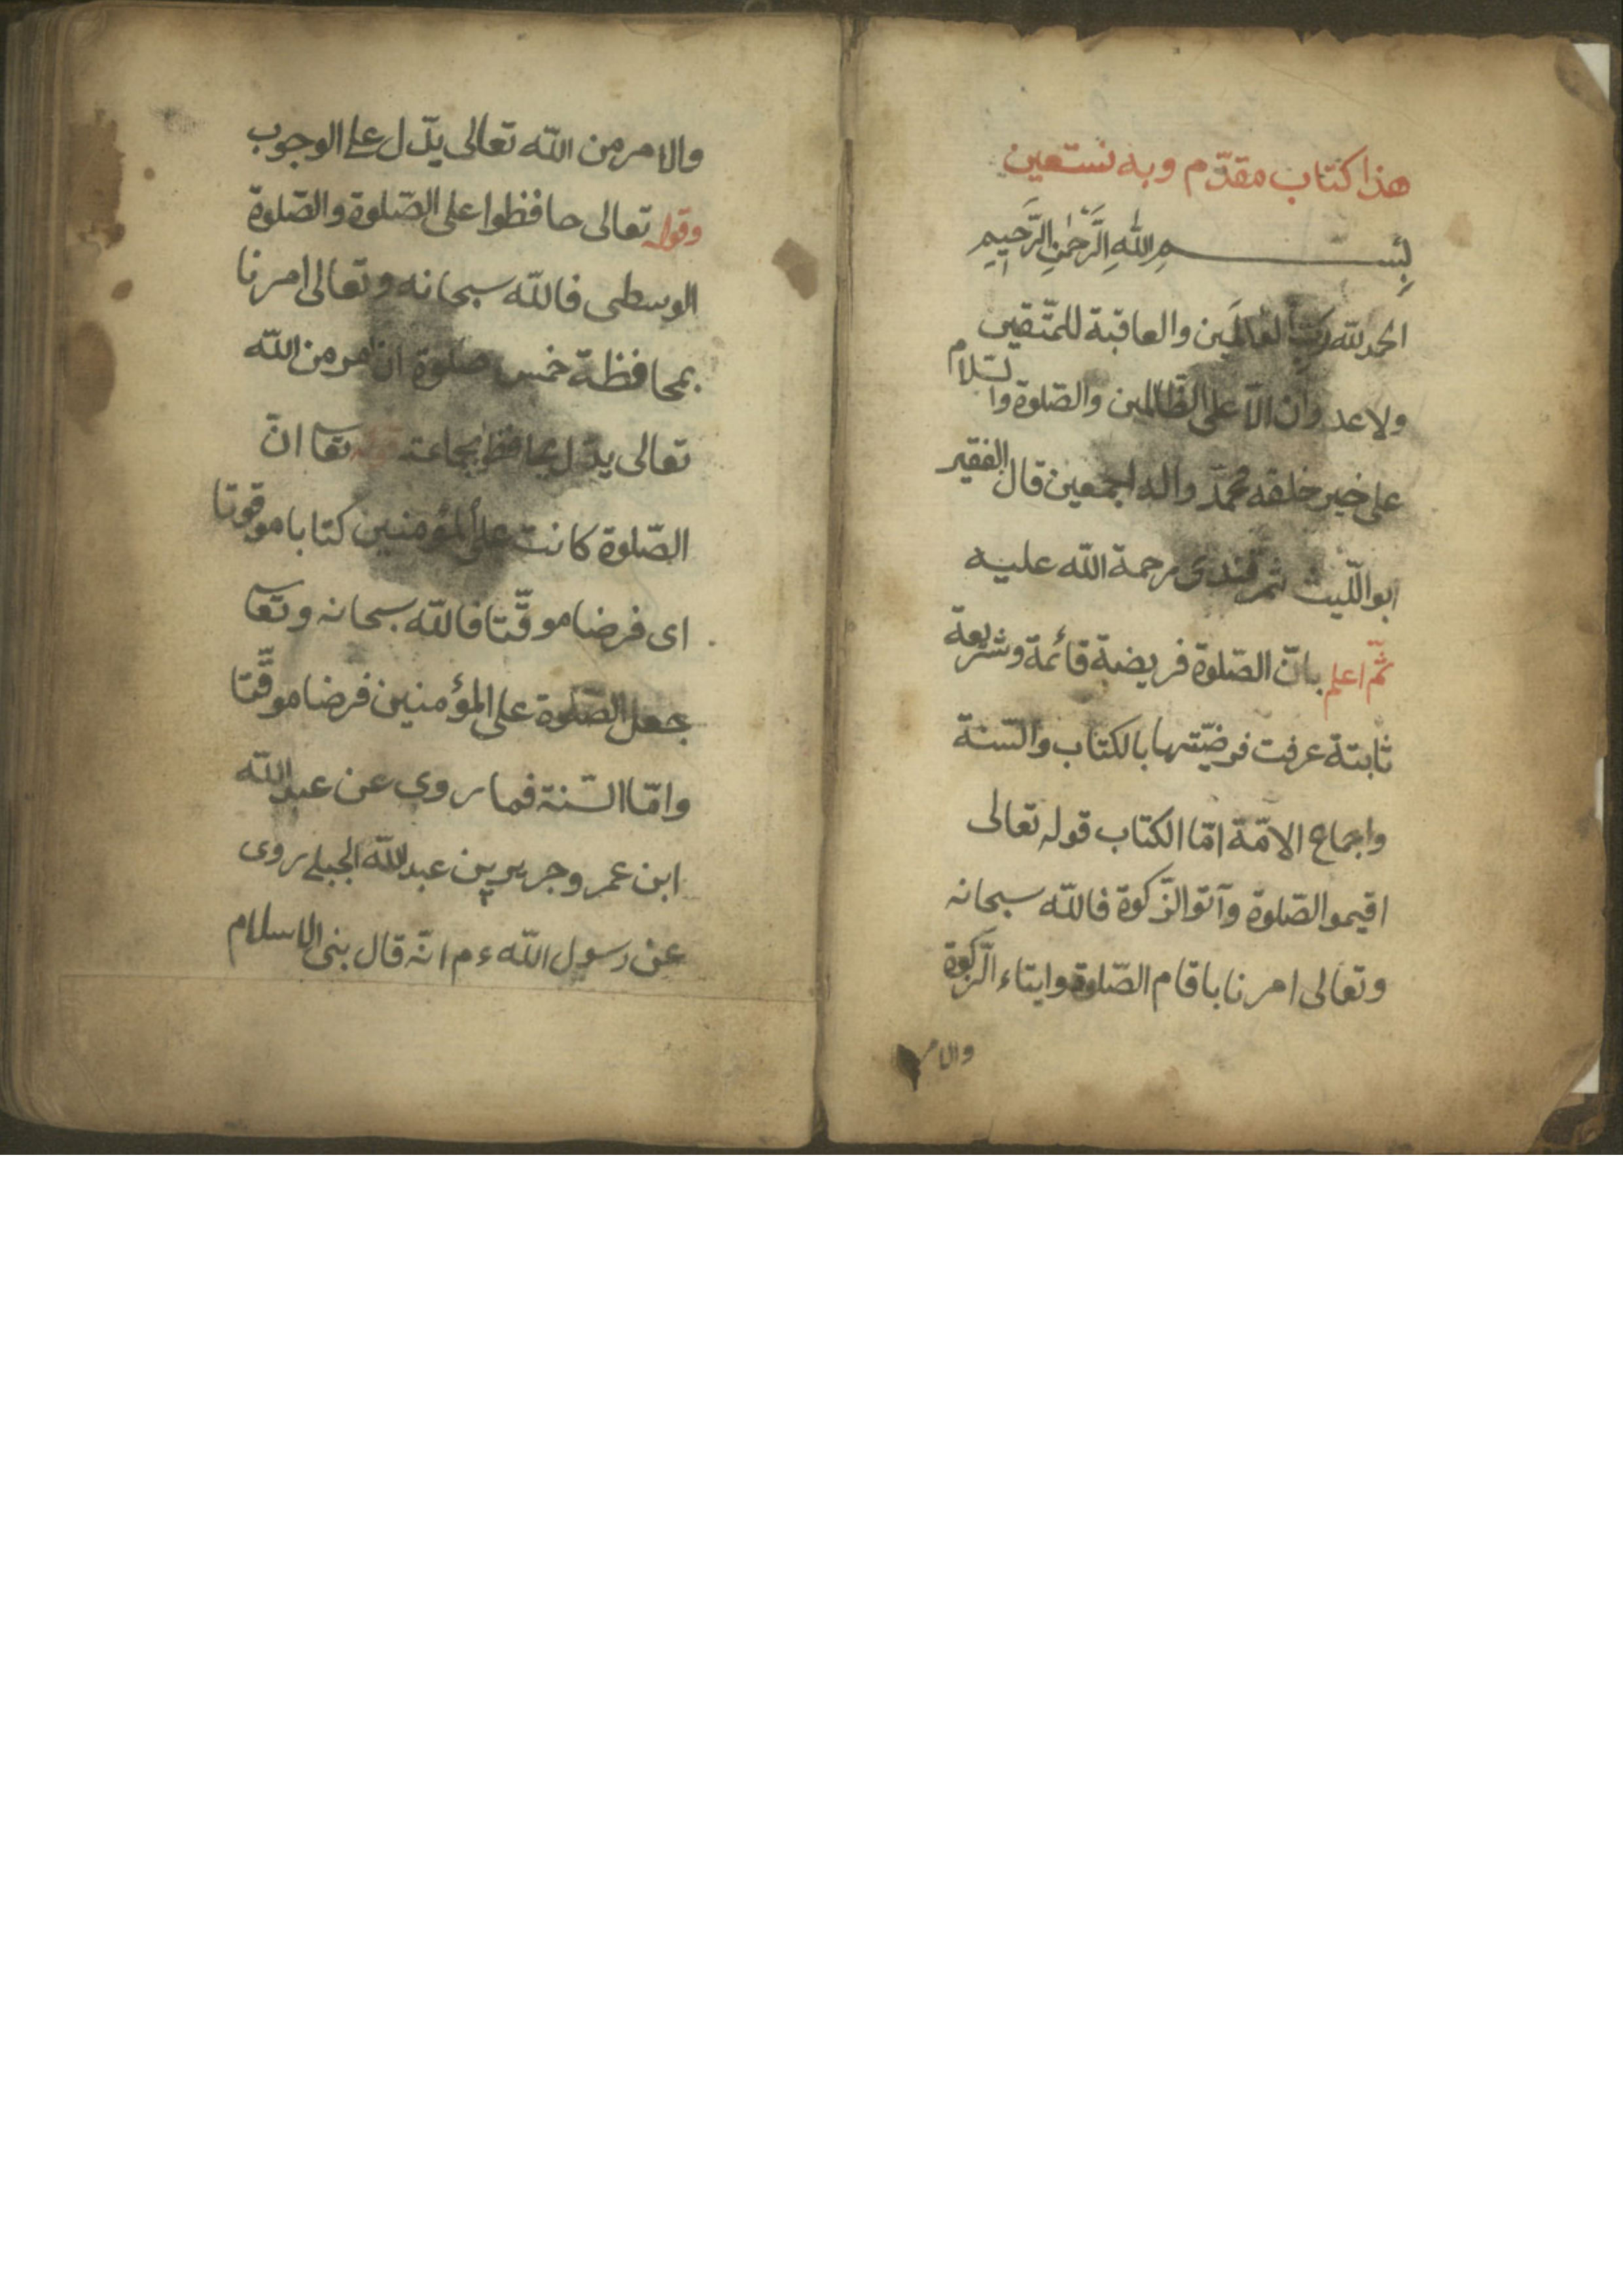 هذا كتاب مقدّم وبه نستعين
بِسْمِ اللهِ الرَّحْمٰنِ الرَّحِيمِ
الحمد لله رَبِّ العالَمين والعاقبة للمتّقين
ولا عدوان الّا على الظّالمين والصّلوة والسّلام
على خير خلقه محمّد واله اجمعين قال الفقير
ابو اللّيث ثمرقندى رحمة الله عليه
ثمّ اعلم بانّ الصّلوة فريضة قائمة وشريعة
ثابتة عرفت فرضيّتها بالكتاب والسّنة
واجماع الامّة امّا الكتاب قوله تعالى
اقيموا الصّلوة وآتوا الزّكوة فاللّه سبحانه
وتعالى امرنا باقام الصّلوة وايتاء الزّكوة
والامر
والامر من اللّه تعالى يدّل على الوجوب
وقوله تعالى حافظوا على الصّلوة والصّلوة
الوسطى فاللّه سبحانه وتعالى امرنا
بمحافظة خمس صلوة الامر من اللّه
تعالى يدّل بجماعة قوله تعا انّ
الصّلوة كانت على المؤمنين كتابا موقوتا
اى فرضا موقّتا فاللّه سبحانه وتعا
جعل الصّلوة على المؤمنين فرضا موقّتا
وامّا السّنة فما روى عن عبد اللّه
ابن عمر وجرير بن عبد اللّه الجبلے روى
عن رسول اللّه ءم انّه قال بنى الاسلام